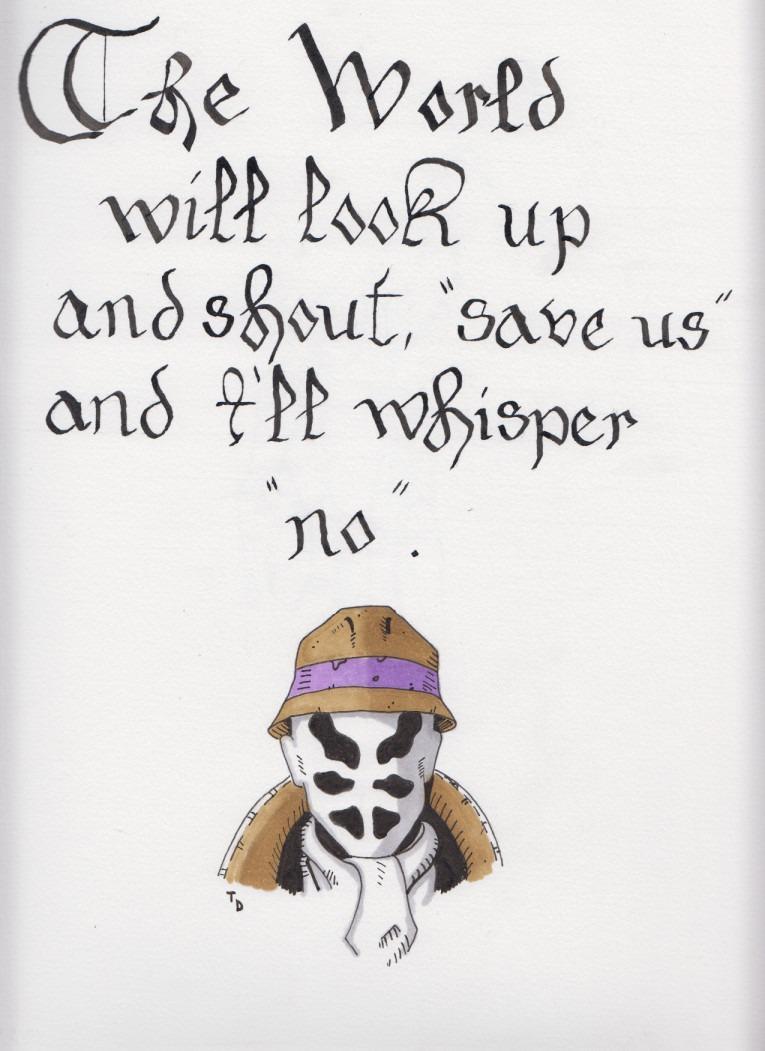 The World
will look up
and shout, "save us"
and I'll whisper
"no".
TD